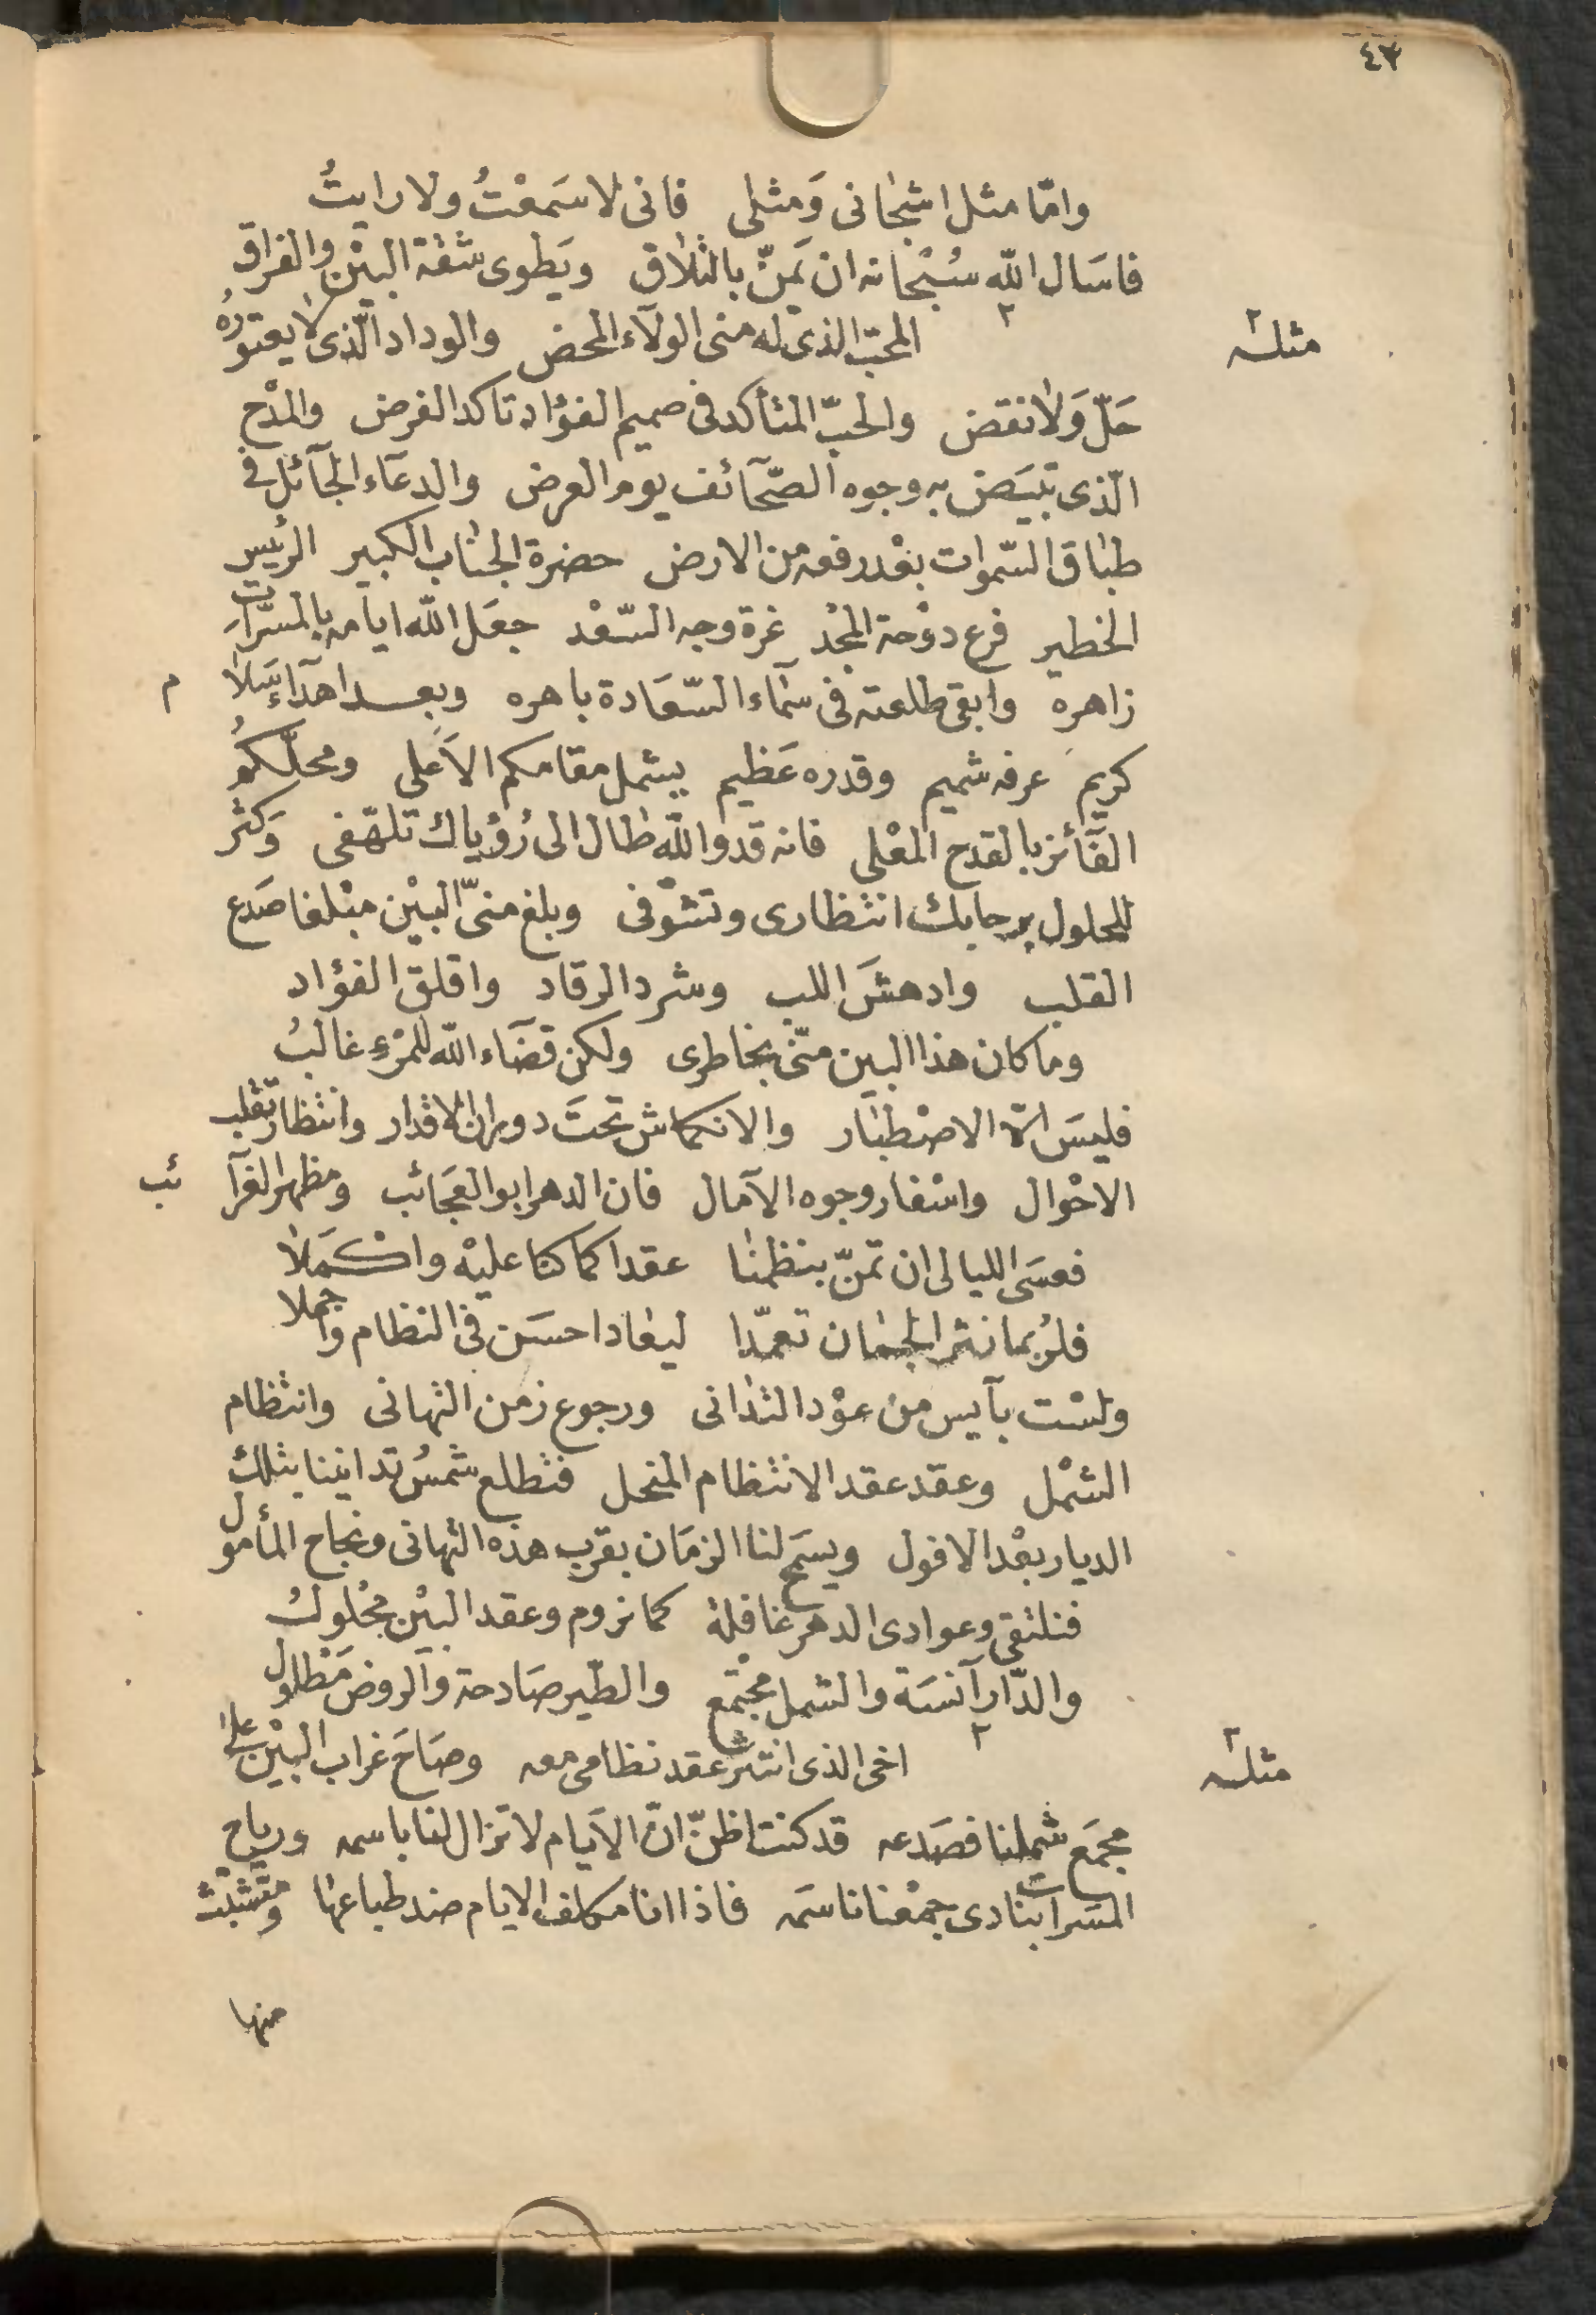 ٤٣
وامّا مثل اشجانى وَمثلى فانى لا سَمعْتُ ولا رايتُ
فاسَال الله سُبْحانه ان يَمنّ بالتلاق ويَطوى شقة البيْن والفراق
مثله ٢ المحبّ الذى له منى الولآء المحض والوداد الّذى لا يعتوره
حَلّ وَلا نقض والحبّ المتأكد فى صميم الفؤاد تاكد الفرض والمدْح
الّذى تبيَض به وجوه الصّحآئف يوم العرض والدعَآء الجآئل فى
طباق السّموات بعْد رفعه من الارض حضرة الجناب الكبير الرئيس
الخطير فرع دوْحة المجْد غرة وجه السّعْد جعَل الله ايامه بالمسَّرات
زاهره وابقى طلعته فى سَمآء السّعَادة باهره وبعـد اهدآء سَلام
كريم عرفه شميم وقدره عَظيم يشمل مقامكم الاَعلى ومحلّكمُ
الفَائز بالقدح المعْلى فانه قد والله طال الى رُؤياك تلهّفى وَكثر
للحلول برحابك انتظارى وتشوّقى وبلغ منىّ البيْن مبْلغا صَدع
القلب وادهشَ اللب وشرد الرقاد واقلق الفؤاد
وما كان هذا البين منّى بخاطرى ولكن قضَآء الله للمرْءِ غالبُ
فليسَ الاّ الاصْطبار والانكماش تحتَ دوران الاقدار وانتظار تقلب
الاحْوال واسْفار وجوه الآمال فان الدهر ابو العجَائب ومظهر الغرآئب
فعسَى الليالى ان تمنّ بنظمنا عقدا كما كنا عليْه واكْمَلا
فلرُبما نثر الجمان تعمّدا ليعاد احسَن فى النظام واجملا
ولسْت بآيس من عوْد التدانى ورجوع زمن التهانى وانتظام
الشمْل وعقد عقد الانتظام المنحل فتطلع شمسُ تدانينا بتلك
الديار بعْد الافول ويسمَح لنا الزمَان بقرب هذه التهانى ونجاح المأمول
فنلتقى وعوادى الدهر غافلة كما نروم وعقد البيْن محْلولُ
والدّار آنسَة والشمل مجْتمع والطّير صَادحة والروض مَطلول
مثله ٢ اخى الذى انتثر عقد نظامى معه وصَاحَ غراب البيْن على
مجمَع شملنا فصَدعه قد كنت اظنّ انّ الاَيام لا تزال لنا باسمه ورياح
المسَرات بنادى جمْعنا ناسَمه فاذا انا مكلف الايام ضد طباعها ومتشبّث
منها